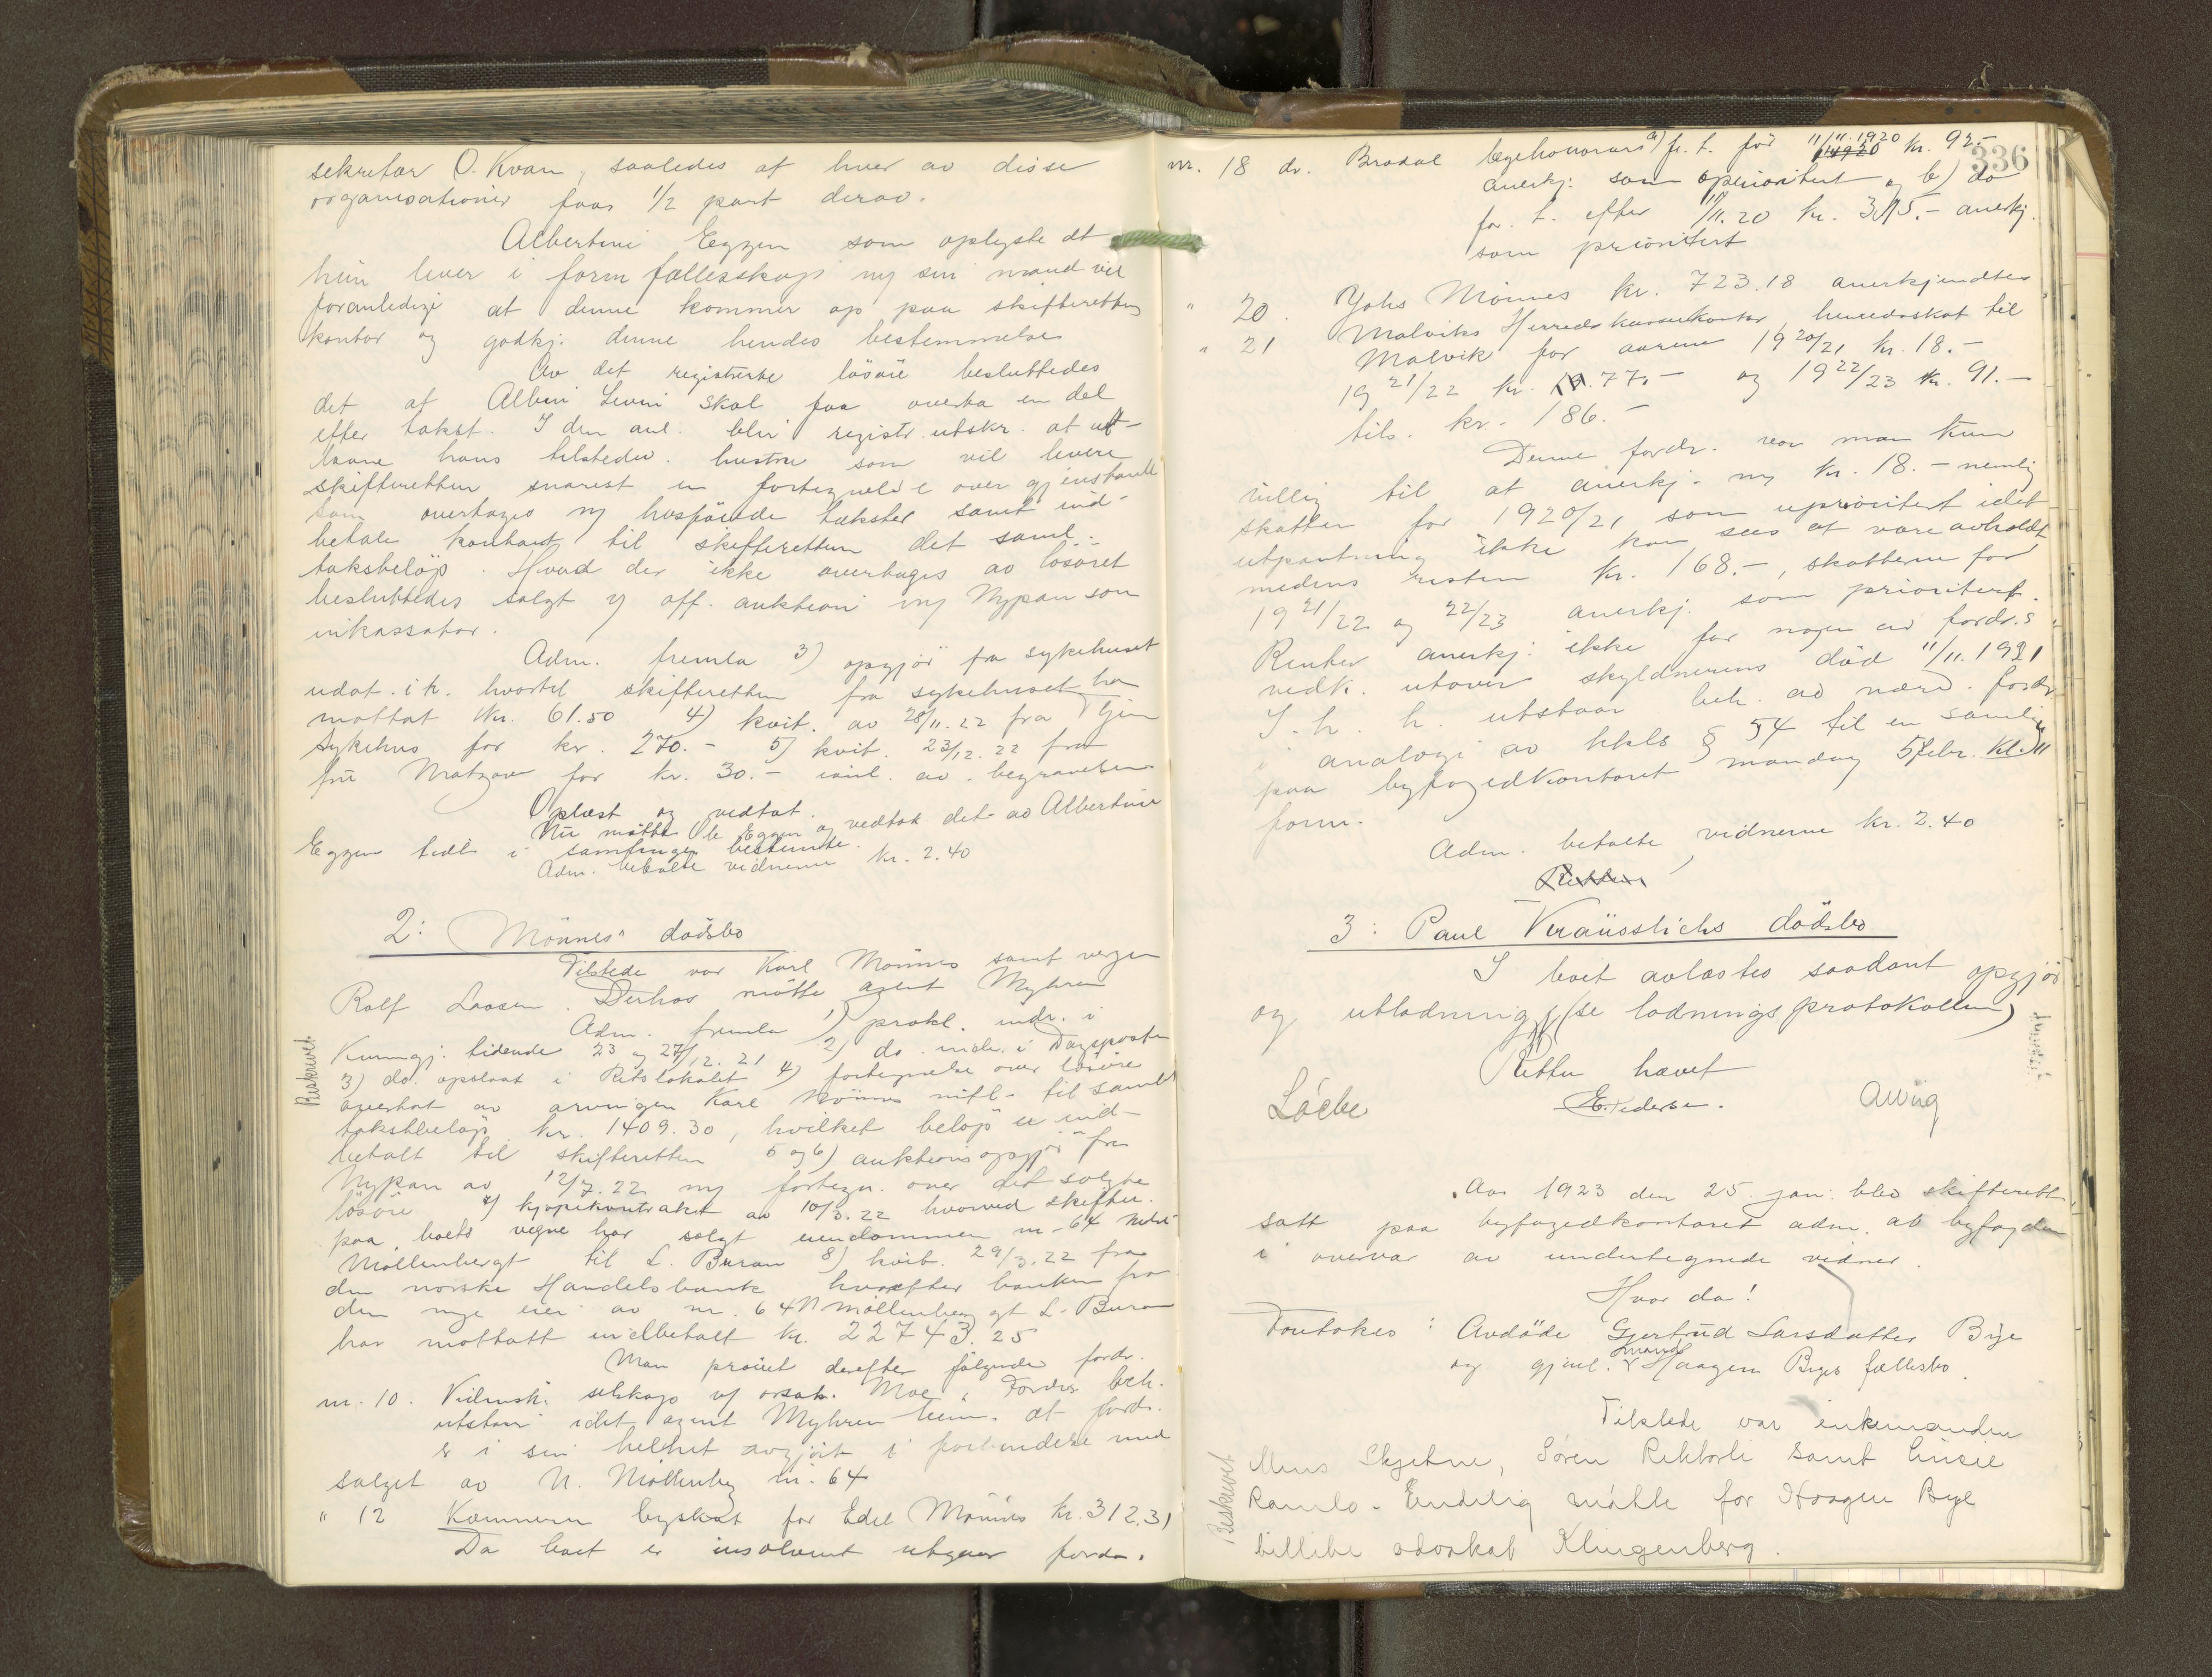 sekretær O. Kvam, saaledes at hver av disse
organisationer faar 1/2 part derav.
Albertine Eggen som oplyste at
hun lever i form fællesskap m/ sin mand vil
foranledige at denne kommer op paa skifterettens
kontor og godkj. denne hendes bestemmelse
Av det registrerte løsøre besluttedes
det at Albin Levin skal faa overta en del
efter takst. I den anl. blir registr. utskr. at ut-
laane hans tilstedev. hustru som vil levere
skifteretten snarest en fortegnelse over gjenstande
som overtages m/ hosføiede takster samt ind-
betale kontant til skifteretten det saml.
takstbeløp. Hvad der ikke overtages av løsøret
besluttedes solgt v/ off. auktion m/ Nypan som
inkassator.
Adm. fremla 3) opgjør fra sykehuset
udat. i h. hvortil skifteretten fra sykehuset har
mottat kr. 61.50 4) kvit. av 28/11.22 fra Tjen
sykehus for kr. 270.- 5) kvit. 23/12.22 fra
fru Matzow for kr. 30.- av begravelsen
Oplæst og vedtat.
Nu møtte Ole Eggen og vedtok det av Albertine
Eggen tidl. i samlingen bestemte.
Adm. betalte vidnerne kr. 2.40
2: Mønnes' dødsbo
Tilstede var Karl Mønnes samt vergen
Rolf Laosen. Derhos møtte agent Myhren
Adm. fremla 1) prokl. indr. i
Kunngj. tidende 23 og 27/12.21 2) do. indr. i Dagsposten
3) do. opslaat i Retslokalet 4) fortegnelse over løsøre
overtat av arvingen Karl Mønnes mitl. til samlet
takstbeløp kr. 1409.30, hvilket beløp er ind-
betalt til skifteretten 5 og 6) auktionsopgjør fra
Nypan av 12/7.22 m/ fortegn. over det solgte
løsøre 7) kjøpekontrakt av 10/3.22 hvorved skifter.
paa boets vegne har solgt eiendommen nr. 64 Nedre
Møllenbergt til L. Buran 8) kvit. 29/3.22 fra
den norske Handelsbank hvorefter banken fra
den nye eier av nr. 64 N Møllenberg gt L. Buran
har mottatt indbetalt kr. 22743.25
Man prøvet derefter følgende fordr.
nr. 10. Vidensk. selskap v/ orsak. Moe. Fordrs beh.
utstaar idet agent Myhren mein. at fordr.
er i sin helhet avgjort i forbindelse med
salget av N. Møllenberg nr. 64
" 12 Kæmneren byskat for Edel Mønnes kr. 312.31
Da boet er insolvent utgaar fordr.
336
nr. 18 dr. Bradal lægehonorar a) fr. t. før 11/11.1920 kr. 92.-
anerkj. som uprioritert og b) do
for t. efter 11/11.20 kr. 315.- anerkj.
som prioritert
" 20. Johs Mønnes kr. 723.18 anerkjendtes
" 21 Malviks Herredskassekontor, herredsskat til
Malvik for aarene 1920/21 kr. 18.-
1921/22 kr. 77.- og 1922/23 kr. 91.-
tils. kr. 186.-
Denne fordr. var man kun
villig til at anerkj. m/ kr. 18.- nemlig
skatten for 1920/21 som uprioritert idet
utpantning ikke kan sees at være avholdt,
medens resten kr. 168.-, skatterne for
1921/22 og 22/23 anerkj. som prioritert.
Renter anerkj. ikke for nogen av fordr.s
vedk. utover skyldnerens død 11/11.1921
I. h. h. utstaar beh. av nærv. fordr.
i analogi av kkls § 54 til en samling
paa byfogedkontoret mandag 5 febr. kl. 11
form.
Adm. betalte vidnerne kr. 2.40
Retten
3: Paul Kräusslichs dødsbo
I boet avlæstes saadant opgjør
og utlodning (se lodningsprotokollen)
Retten hævet
Løche E. Pedersen. Awug
Aar 1923 den 25. jan. blev skifterett
satt paa byfogedkontoret adm. av byfogden
i overvær av undertegnede vidner.
Hvor da!
Foretokes: Avdøde Gjertrud Larsdatter Bye
og gjenl. mand Haagen Byes fællesbo.
Tilstede var enkemanden
Mens Skjetne, Søren Rikborli samt
Ramlo. Endelig møtte for Haagen Bye
billibe advokat Klingenberg.
Beskrevet
Beskrevet